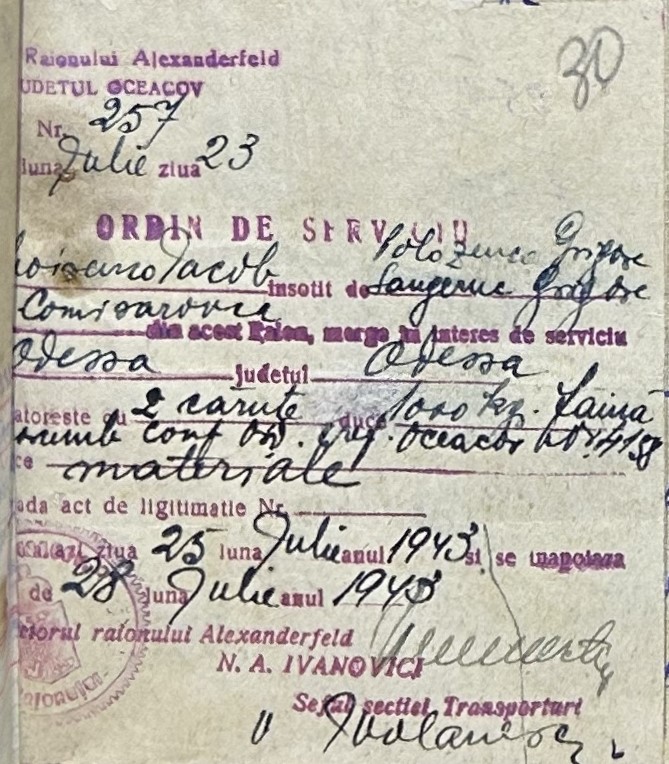 30
Raionului Alexanderfeld
UDETUL OCEACOV
Nr. 257
luna Julie ziua 23
ORDIN DE SERVICIU
Grigore
Jacob insotit de Grigore
Comisarovca
din acest Raion, merge in interes de serviciu
Odessa judetul Odessa
atoreste cu 2 carute duce 1000 kg. faina
conf. Ord. pref. Oceacov No. 4158
ce materiale
ada act de ligitimatie Nr.
ziua 25 luna Julie anul 1943 si se inapoiaza
de 28 luna Julie anul 1943
torul raionului Alexanderfeld
N. A. IVANOVICI
Seful sectiei Transporturi